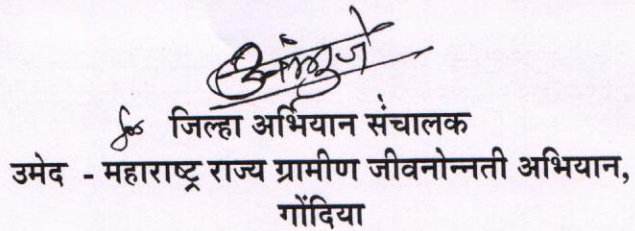 for जिल्हा अभियान संचालक
उमेद - महाराष्ट्र राज्य ग्रामीण जीवनोन्नती अभियान,
गोंदिया